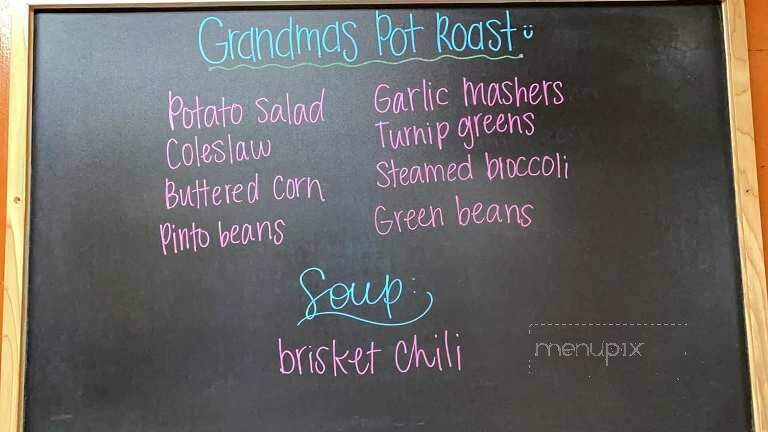 Grandmas Pot Roast
Potato Salad
Coleslaw
Buttered Corn
Pinto beans
Garlic mashers
Turnip greens
Steamed broccoli
Green beans
Soup:
brisket Chili
menupix